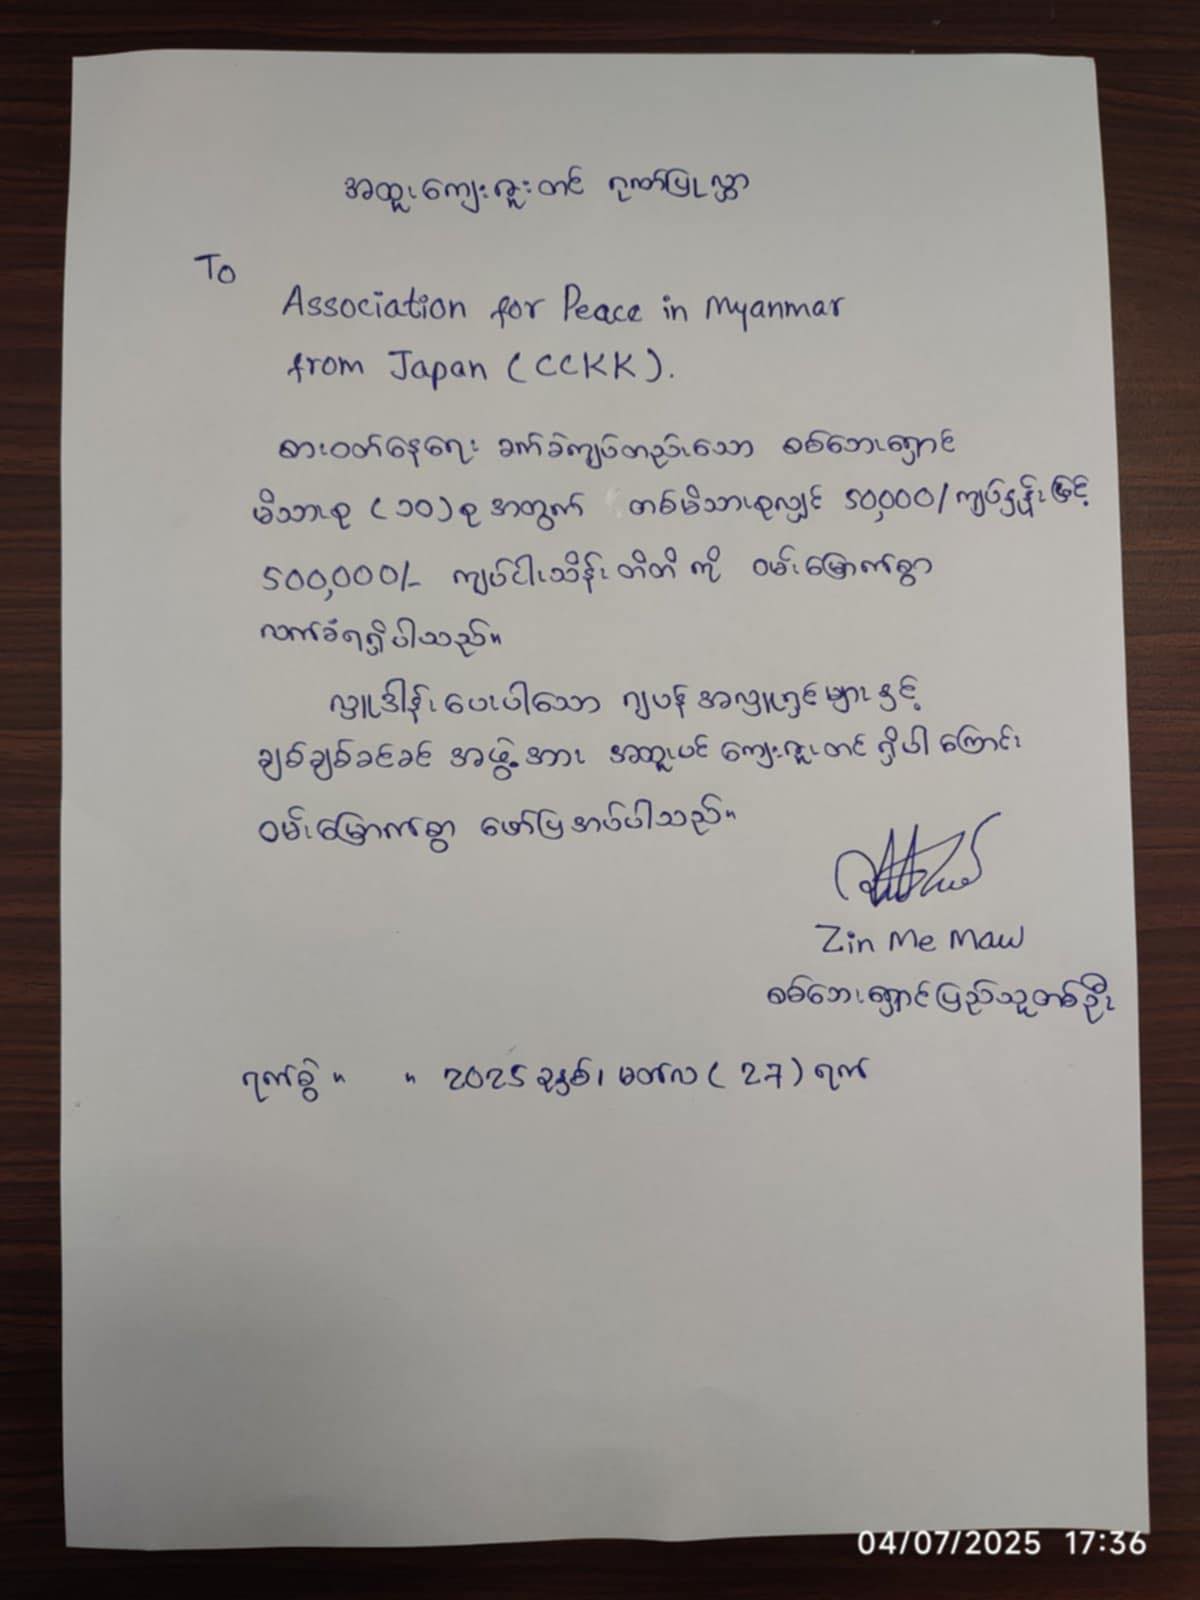 အထူးကျေးဇူးတင် ဂုဏ်ပြုလွှာ
To
Association for Peace in Myanmar
from Japan (CCKK).
စားဝတ်နေရေး ခက်ခဲကျပ်တည်းသော စစ်ဘေးရှောင်
မိသားစု (၁၀) စု အတွက် တစ်မိသားစုလျှင် 50,000/ကျပ်နှုန်းဖြင့်
500,000/- ကျပ်ငါးသိန်းတိတိ ကို ဝမ်းမြောက်စွာ
လက်ခံရရှိပါသည်။
လှူဒါန်းပေးပါသော ဂျပန် အလှူရှင်များ နှင့်
ချစ်ချစ်ခင်ခင် အဖွဲ့အား အထူးပင် ကျေးဇူးတင် ရှိပါ ကြောင်း
ဝမ်းမြောက်စွာ ဖော်ပြအပ်ပါသည်။
Zin Me Maw
စစ်ဘေးရှောင်ပြည်သူတစ်ဦး
ရက်စွဲ ။ ။ 2025 ခုနှစ်၊ မတ်လ (27) ရက်
04/07/2025 17:36